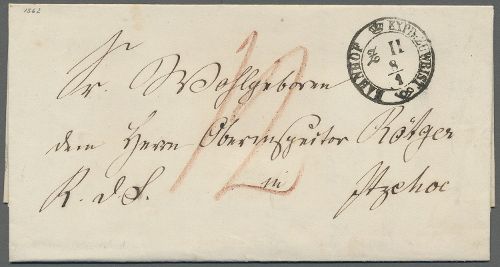 1862
BAHNHOF
II
8/1
12
Sr. Wohlgeboren
dem Herrn Oberinspector Rötger
R. d. D.
in
Itzehoe